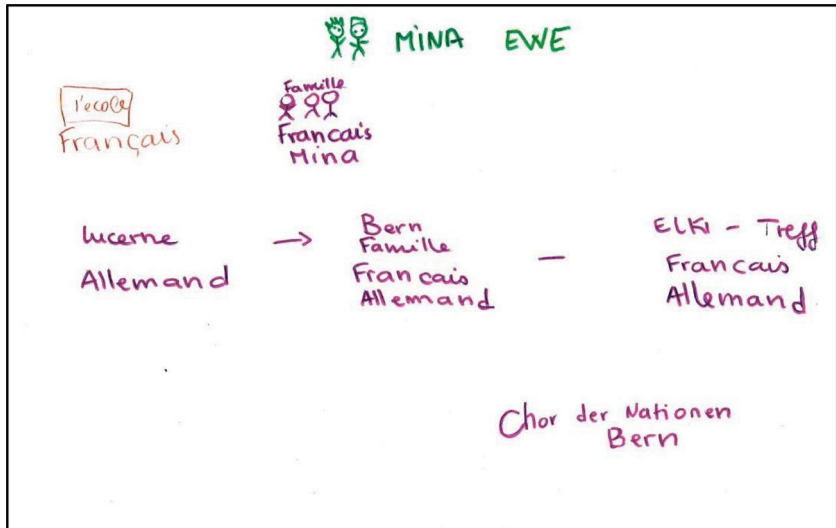 MINA EWE
l'ecole
Français
Famille
Francais
Mina
Lucerne
Allemand
→
Bern
Famille
Francais
Allemand
—
ELKI - Treff
Francais
Allemand
Chor der Nationen
Bern